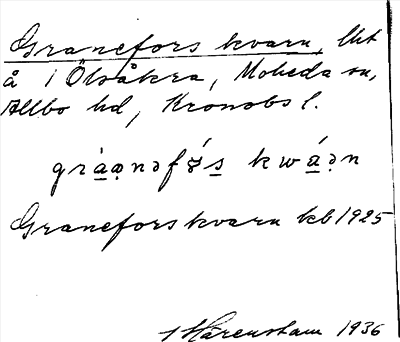 Granefors kvarn, lht
å i Ölsåkra, Moheda sn,
Allbo hd, Kronobs l.
gràa̠ǝnǝfɤ́s̠ kwá̠ǝn
Granefors kvarn kb 1925
Hårenstam 1936